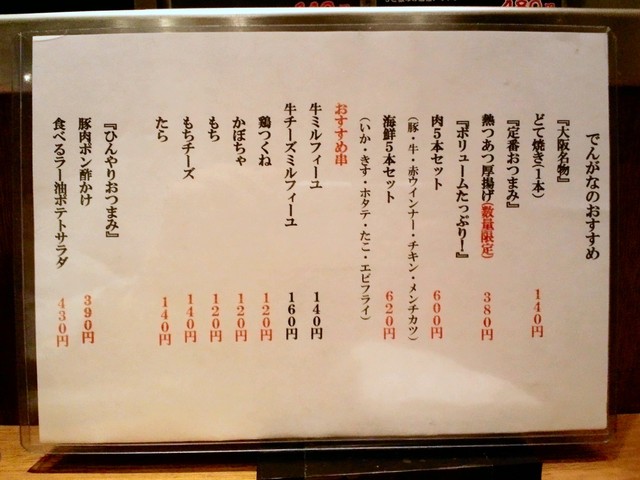 でんがなのおすすめ
『大阪名物』
どて焼き(1本) 140円
『定番おつまみ』
熱つあつ厚揚げ(数量限定) 380円
『ボリュームたっぷり！』
肉5本セット 600円
(豚・牛・赤ウインナー・チキン・メンチカツ)
海鮮5本セット 620円
(いか・きす・ホタテ・たこ・エビフライ)
おすすめ串
牛ミルフィーユ 140円
牛チーズミルフィーユ 160円
鶏つくね 120円
かぼちゃ 120円
もち 120円
もちチーズ 140円
たら 140円
『ひんやりおつまみ』
豚肉ポン酢かけ 390円
食べるラー油ポテトサラダ 430円